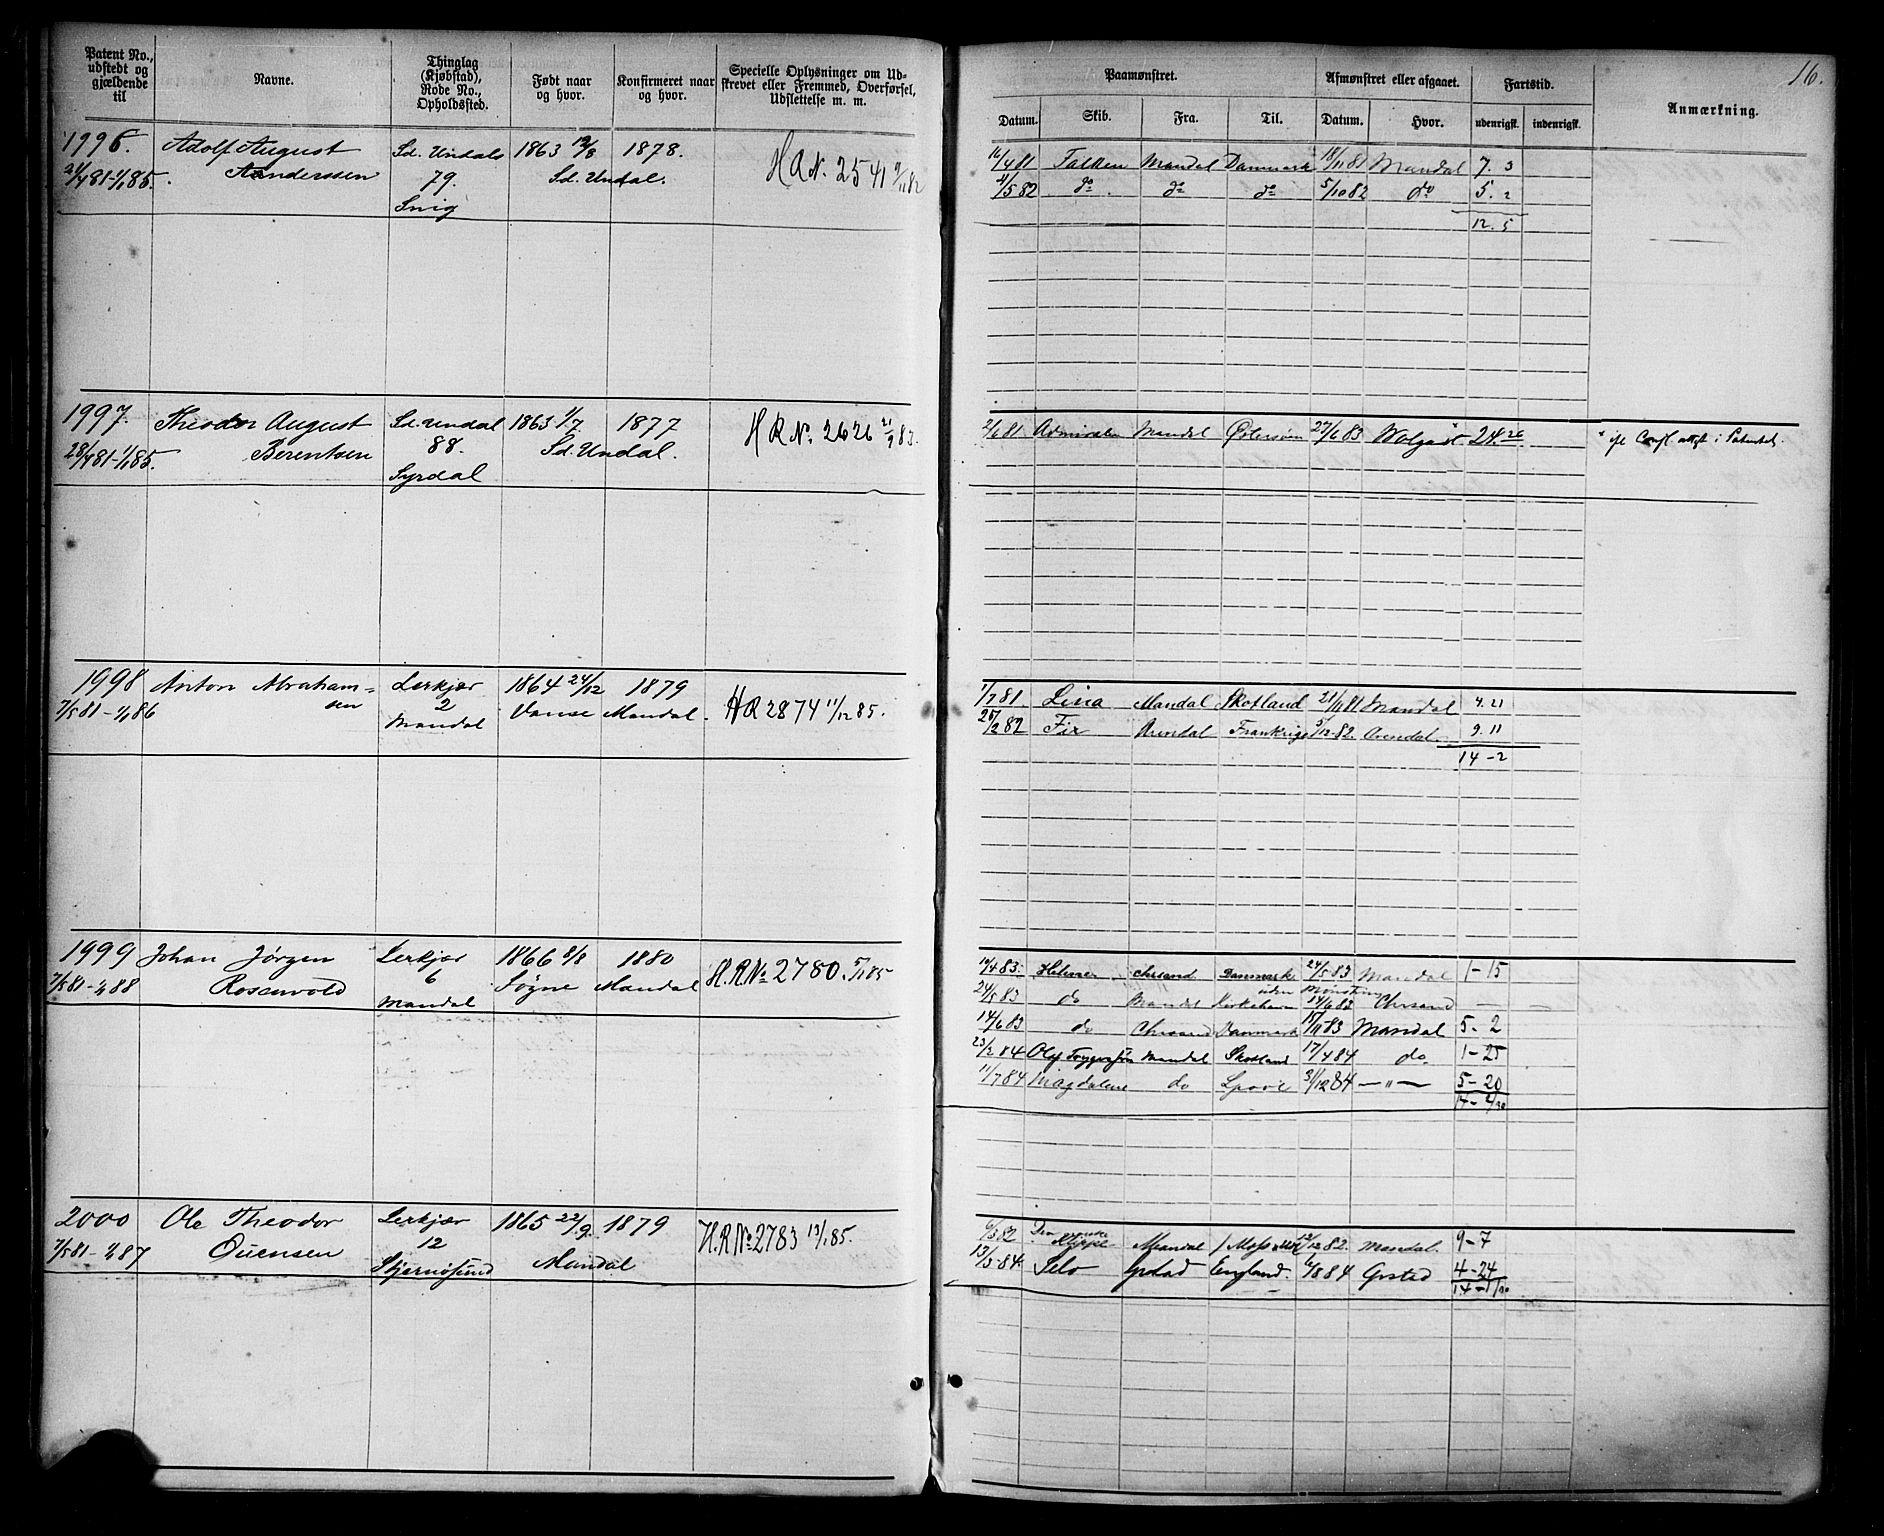 16.
Patent No., udstedt og gjældende til
Navne.
Thinglag (Kjøbstad), Rode No., Opholdssted.
Født naar og hvor.
Konfirmeret naar og hvor.
Specielle Oplysninger om Udskrevet eller Fremmed, Overførsel, Udslettelse m. m.
Paamønstret.
Afmønstret eller afgaaet.
Fartstid.
Anmærkning.
Datum. Skib. Fra. Til. Datum. Hvor. udenrigsk. indenrigsk.
1996. Adolf August Sd. Undals 1863 12/8 1878. H R N. 2541 9/11 82
21/4 81-1/1 85. Aanderssen 79. Sd. Undal.
Snig
16/4 81 Falken Mandal Danmark 18/11 81 Mandal 7. 3
4/5 82 do do do 5/10 82 do 5. 2
12. 5
1997. Theodor August Sd. Undal 1863 1/7 1877 H R No. 2626 21/9 83.
28/4 81-1/1 85. Berentsen 88. Sd. Undal.
Syrdal
2/6 81 Admiralen Mandal Østersøen 27/6 83 Wolgast 24 26
1998 Anton Abraham= Lerkjær 1864 24/12 1879 H R 2874 11/12 85.
7/5 81-1/1 86 sen 2 Vanse Mandal.
Mandal
1/7 81. Lina Mandal Skotland 21/11 81 Mandal 4. 21
25/2 82 Fix Arendal Frankrige 5/12-82. Arendal 9. 11
14-2
1999 Johan Jørgen Lerkjær 1866 8/8 1880 H.R.No 2780. 5/1 85
7/5 81-1/1 88 Rosenvold 6 Søgne Mandal
Mandal
10/4 83. Helene Chrsand Danmark 24/5 83 Mandal 1-15
uden Mønstring
24/5 83 do Mandal 14/6 83 Chrsand —
14/6 83 do Chrsand Danmark 15/11 83 Mandal 5. 2
23/2 84 Olaf Trygvason Mandal Skotland 17/4 84 do. 1-25
11/7 84 Magdalene do 31/12 84 — " — 5-20
14-2/30
2000 Ole Theodor Lerkjær 1865 22/9. 1879 H.R No 2783 13/1 85.
7/5 81-1/1 87 Quensen 12 Mandal
Skjernøsund
6/3 82 Den Mandal 13/12 82. Mandal. 9-7
13/3-84. Selv Grstad England. 6/8 84 Grstad 4-24
14-1/30